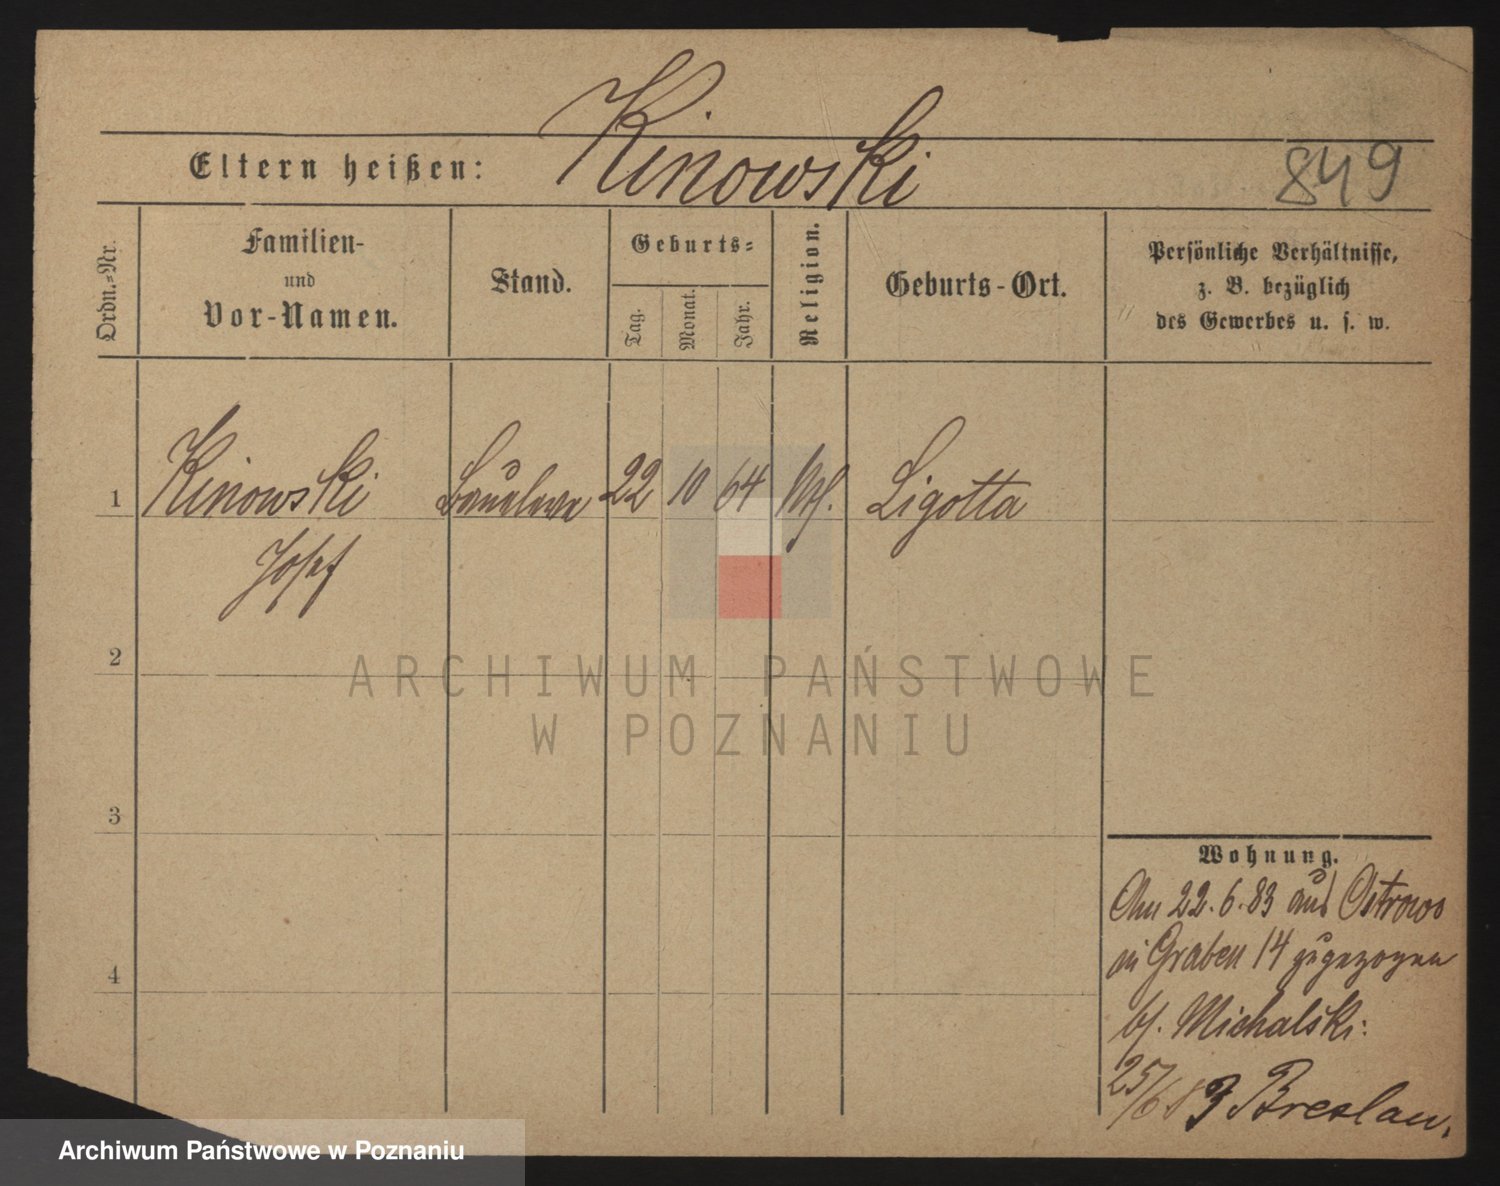 Kinowski
Eltern heißen:
849
Ordn.-Nr.
Familien-
und
Vor-Namen.
Stand.
Geburts-
Tag.
Monat.
Jahr.
Religion.
Geburts-Ort.
Persönliche Verhältnisse,
z. B. bezüglich
des Gewerbes u. s. w.
1 Kinowski 22 10 64 Ligotta
Josef
2
3
4
Wohnung.
Am 22.6.83 aus Ostrowo
in Graben 14 zugezogen
bei Michalski.
25/6 83 Breslau.
ARCHIWUM PAŃSTWOWE
W POZNANIU
Archiwum Państwowe w Poznaniu